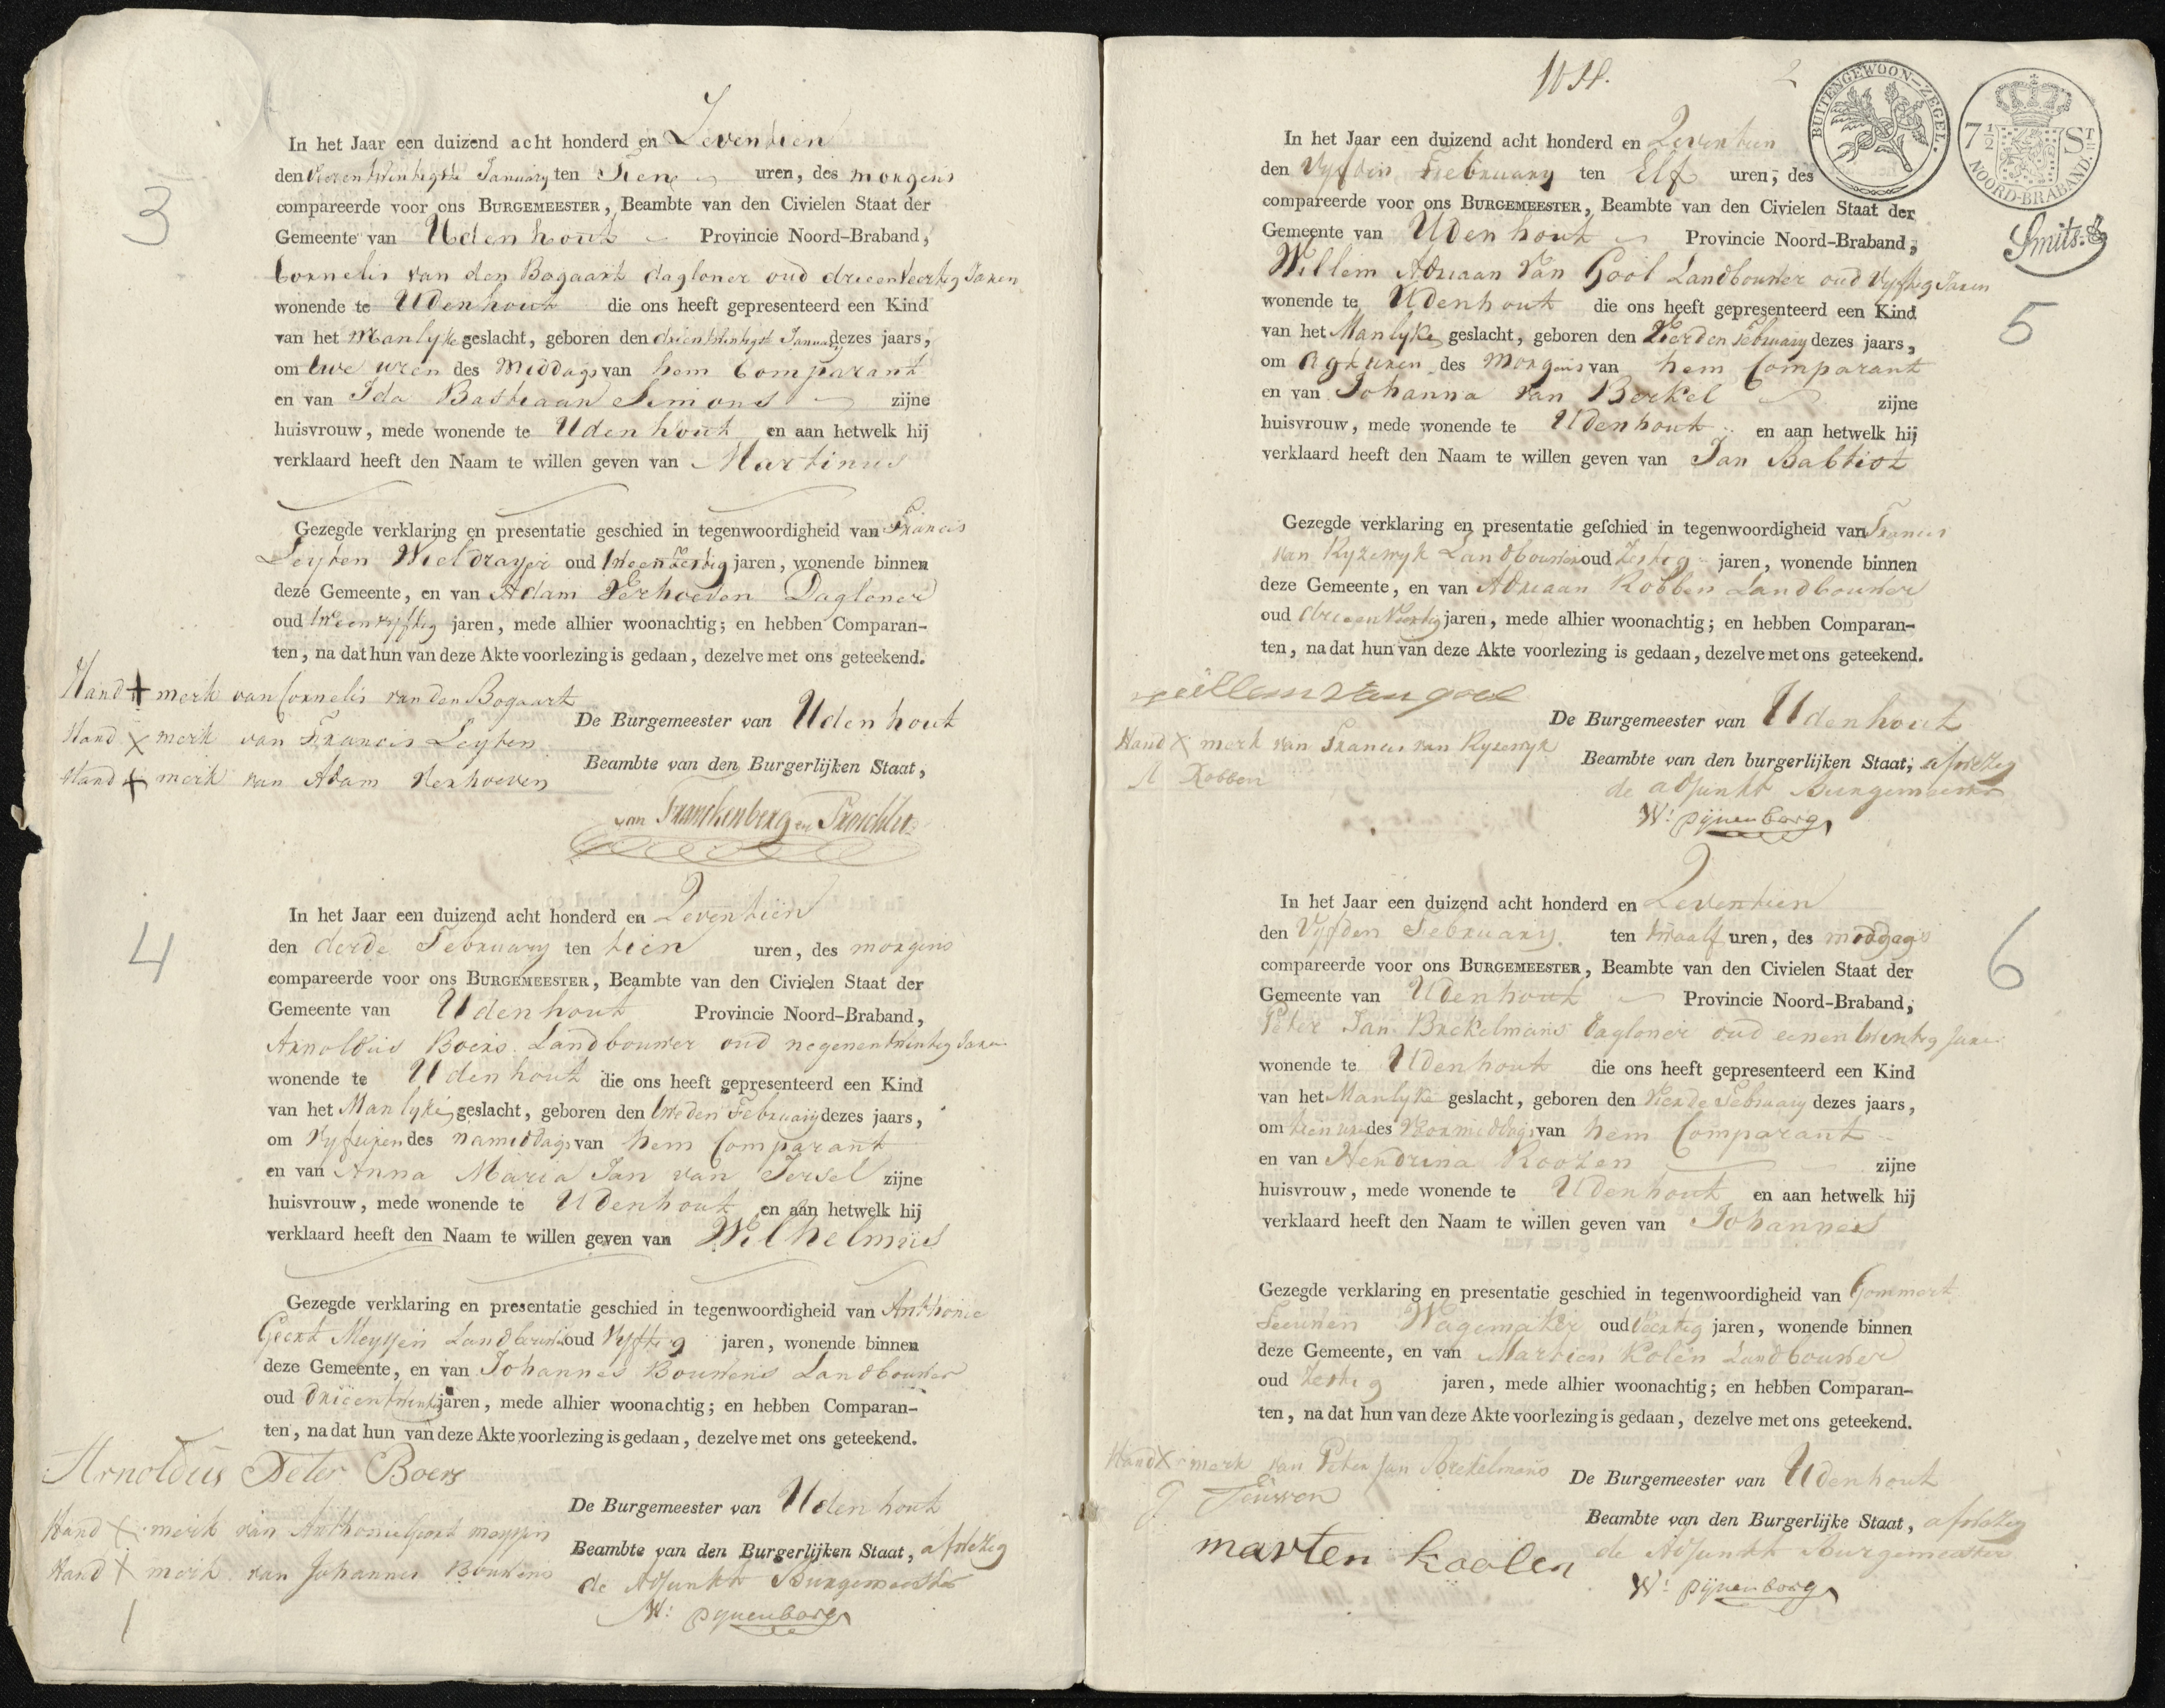 3
In het Jaar een duizend acht honderd en Zeventien
den Vierentwintigste January ten Tien uren, des morgens
compareerde voor ons BURGEMEESTER, Beambte van den Civielen Staat der
Gemeente van Udenhout Provincie Noord-Braband,
Cornelis van den Bogaart dagloner oud drieenveertig Jaren
wonende te Udenhout die ons heeft gepresenteerd een Kind
van het Manlyke geslacht, geboren den drientwintigst January dezes jaars,
om twe uren des Middags van hem Comparant
en van Ida Bastiaan Simons zijne
huisvrouw, mede wonende te Udenhout en aan hetwelk hij
verklaard heeft den Naam te willen geven van Martinus
Gezegde verklaring en presentatie geschied in tegenwoordigheid van Francis
Leyten Wieldrayer oud jaren, wonende binnen
deze Gemeente, en van Adam Verhoeven Dagloner
oud tweenvyftig jaren, mede alhier woonachtig; en hebben Comparan-
ten, na dat hun van deze Akte voorlezing is gedaan, dezelve met ons geteekend.
Hand + merk van Cornelis van den Bogaart
Hand X merk van Francis Leyten
Hand + merk van Adam Verhoeven
De Burgemeester van Udenhout
Beambte van den Burgerlijken Staat,
van Franckenberg en Proschlitz
4
In het Jaar een duizend acht honderd en Zeventien
den derde February ten tien uren, des morgens
compareerde voor ons BURGEMEESTER, Beambte van den Civielen Staat der
Gemeente van Udenhout Provincie Noord-Braband,
Arnoldus Boers Landbouwer oud negenentwintig Jaren
wonende te Udenhout die ons heeft gepresenteerd een Kind
van het Manlyke geslacht, geboren den tweden February dezes jaars,
om Vyf uren des namiddags van hem Comparant
en van Anna Maria Jan van Iersel zijne
huisvrouw, mede wonende te Udenhout en aan hetwelk hij
verklaard heeft den Naam te willen geven van Wilhelmus
Gezegde verklaring en presentatie geschied in tegenwoordigheid van Anthonie
Geert Meyssen Landbouwer oud Vyftig jaren, wonende binnen
deze Gemeente, en van Johannes Bouwens Landbouwer
oud drieentwintig jaren, mede alhier woonachtig; en hebben Comparan-
ten, na dat hun van deze Akte voorlezing is gedaan, dezelve met ons geteekend.
Arnoldus Peter Boers
Hand X merk van Anthonie Geert Meyssen
Hand X merk van Johannes Bouwens
De Burgemeester van Udenhout
Beambte van den Burgerlijken Staat, afwezig
de Adjunkt Burgemeester
W: pijnenborg
2
BUITENGEWOON-ZEGEL.
7 1/2 ST
NOORD-BRABAND.
Smits
5
In het Jaar een duizend acht honderd en Zeventien
den Vyfden February ten Elf uren, des
compareerde voor ons BURGEMEESTER, Beambte van den Civielen Staat der
Gemeente van Udenhout Provincie Noord-Braband,
Willem Adriaan Van Gool Landbouwer oud Vyftig Jaren
wonende te Udenhout die ons heeft gepresenteerd een Kind
van het Manlyke geslacht, geboren den Vierden February dezes jaars,
om Agt uren des Morgens van hem Comparant
en van Johanna van Berkel zijne
huisvrouw, mede wonende te Udenhout en aan hetwelk hij
verklaard heeft den Naam te willen geven van Jan Babtist
Gezegde verklaring en presentatie geschied in tegenwoordigheid van Francis
van Ryzewyk Landbouwer oud Zestig jaren, wonende binnen
deze Gemeente, en van Adriaan Robben Landbouwer
oud drieenVeertig jaren, mede alhier woonachtig; en hebben Comparan-
ten, na dat hun van deze Akte voorlezing is gedaan, dezelve met ons geteekend.
willem van gool
Hand X merk van Francis van Ryzewyk
A Robben
De Burgemeester van Udenhout
Beambte van den burgerlijken Staat, afwezig
de adjunkt Burgemeester
W: pijnenborg
6
In het Jaar een duizend acht honderd en Zeventien
den Vyfden February ten twaalf uren, des middags
compareerde voor ons BURGEMEESTER, Beambte van den Civielen Staat der
Gemeente van Udenhout Provincie Noord-Braband,
Peter Jan Brekelmans dagloner oud eenentwintig Jaren
wonende te Udenhout die ons heeft gepresenteerd een Kind
van het Manlyke geslacht, geboren den Vierde February dezes jaars,
om tien uren des Voormiddags van hem Comparant
en van Hendrina Roozen zijne
huisvrouw, mede wonende te Udenhout en aan hetwelk hij
verklaard heeft den Naam te willen geven van Johannes
Gezegde verklaring en presentatie geschied in tegenwoordigheid van Gommert
Teeuwen Wagemaker oud Veertig jaren, wonende binnen
deze Gemeente, en van Martien Kolen Landbouwer
oud Zestig jaren, mede alhier woonachtig; en hebben Comparan-
ten, na dat hun van deze Akte voorlezing is gedaan, dezelve met ons geteekend.
Hand X merk van Peter Jan Brekelmans
G Teuwen
marten koolen
De Burgemeester van Udenhout
Beambte van den Burgerlijke Staat, afwezig
de Adjunkt Burgemeester
W: pijnenborg